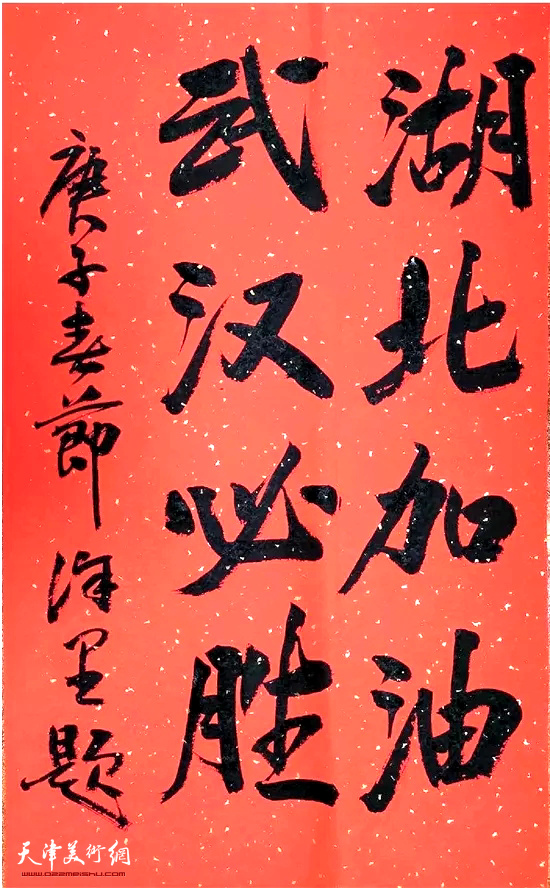 湖北加油
武汉必胜
庚子春節 里題
天津美術網
www.022meishu.com